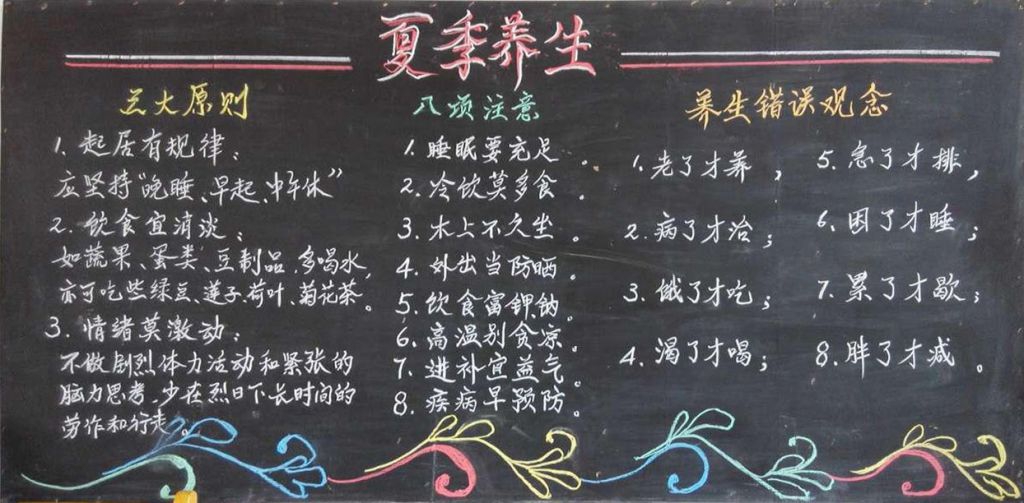 夏季养生
三大原则
1. 起居有规律：
应坚持“晚睡、早起、中午休”
2. 饮食宜清淡：
如蔬果、蛋类、豆制品，多喝水，
亦可吃些绿豆、莲子、荷叶、菊花茶。
3. 情绪莫激动：
不做剧烈体力活动和紧张的
脑力思考，少在烈日下长时间的
劳作和行走。
八项注意
1. 睡眠要充足。
2. 冷饮莫多食。
3. 木上不久坐。
4. 外出当防晒。
5. 饮食富钾钠。
6. 高温别贪凉。
7. 进补宜益气。
8. 疾病早预防。
养生错误观念
1. 老了才养，
2. 病了才治；
3. 饿了才吃；
4. 渴了才喝；
5. 急了才排，
6. 困了才睡；
7. 累了才歇；
8. 胖了才减。